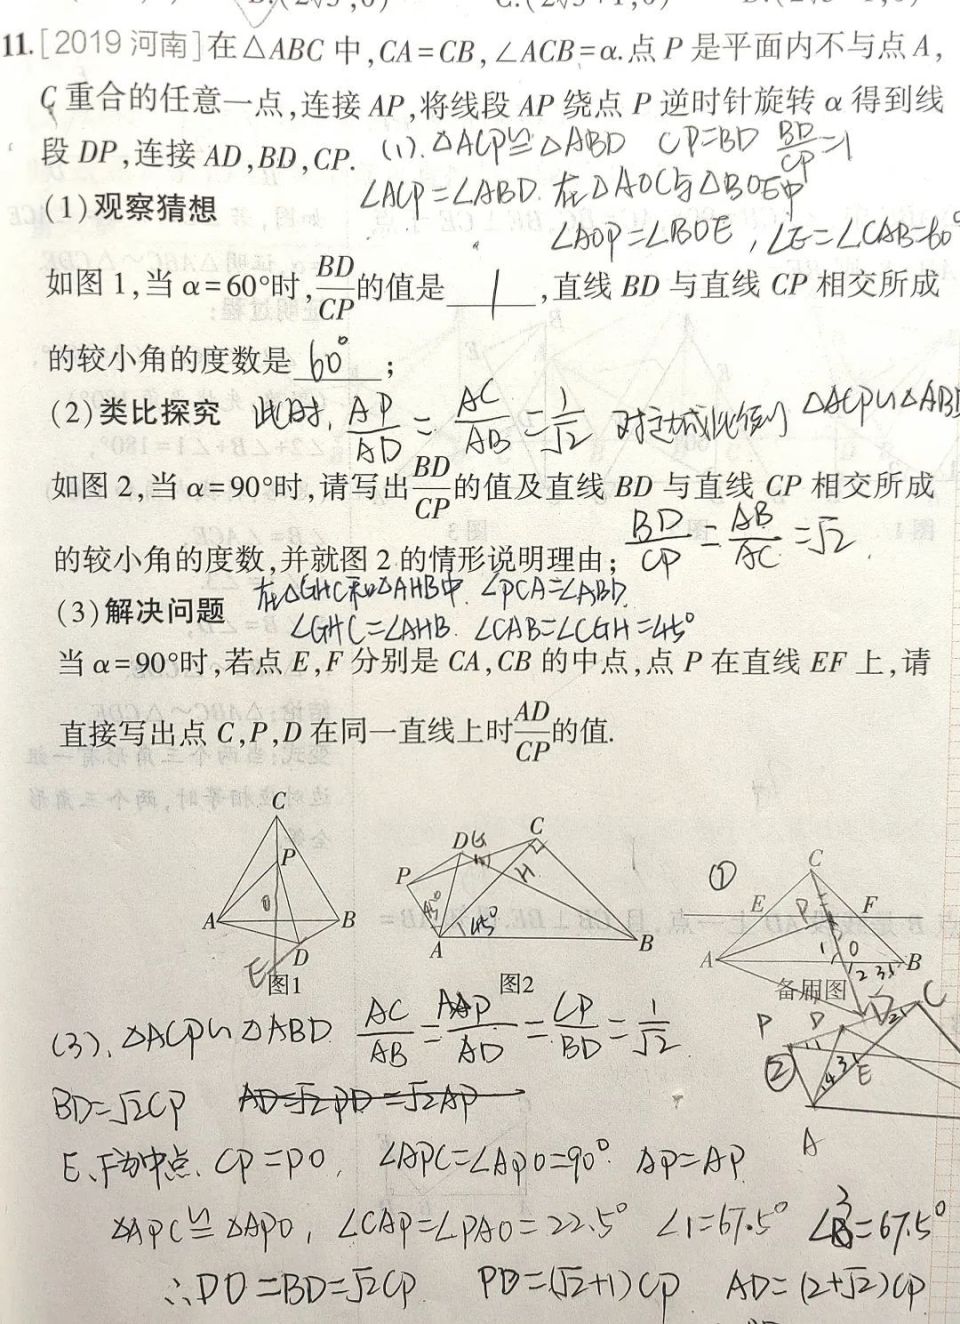 11.[2019河南]在△ABC中,CA=CB,∠ACB=α.点P是平面内不与点A,
C重合的任意一点,连接AP,将线段AP绕点P逆时针旋转α得到线
段DP,连接AD,BD,CP. (1). △ACP≌△ABD CP=BD BD/CP=1
∠ACP=∠ABD. 在△AOC与△BOE中
(1)观察猜想
∠AOP=∠BOE, ∠E=∠CAB=60°
如图1,当α=60°时,BD/CP的值是 1 ,直线BD与直线CP相交所成
的较小角的度数是 60° ;
(2)类比探究 此时, AP/AD=AC/AB=1/√2 对应边成比例 △ACP∽△ABD
如图2,当α=90°时,请写出BD/CP的值及直线BD与直线CP相交所成
的较小角的度数,并就图2的情形说明理由; BD/CP=AB/AC=√2.
(3)解决问题 在△GHC和△AHB中. ∠PCA=∠ABD.
∠GHC=∠AHB. ∠CAB=∠CGH=45°
当α=90°时,若点E,F分别是CA,CB的中点,点P在直线EF上,请
直接写出点C,P,D在同一直线上时AD/CP的值.
C
P
O
A
B
D
E
图1
D G
C
P
H
45°
45°
A
B
图2
①
C
E
P
F
1
O
A
2 3
B
备用图
D
C
P
D
②
E
A
(3). △ACP∽△ABD AC/AB=AP/AD=CP/BD=1/√2
BD=√2CP AD=√2PD=√2AP
E、F为中点. CP=PO, ∠APC=∠APO=90°. AP=AP
△APC≌△APO, ∠CAP=∠PAO=22.5° ∠1=67.5° ∠3=67.5°
∴DO=BD=√2CP PD=(√2+1)CP AD=(2+√2)CP